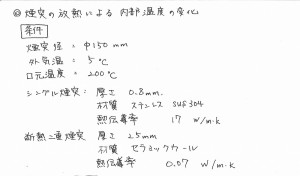 ◎ 煙突の放熱による内部温度の変化
条件
煙突径 = φ150 mm
外気温 = 5 ℃
口元温度 = 200℃
シングル煙突: 厚さ 0.8mm.
材質 ステンレス SUS304
熱伝導率 17 W/m・k
断熱二重煙突 厚さ 25mm
材質 セラミックウール
熱伝導率 0.07 W/m・k